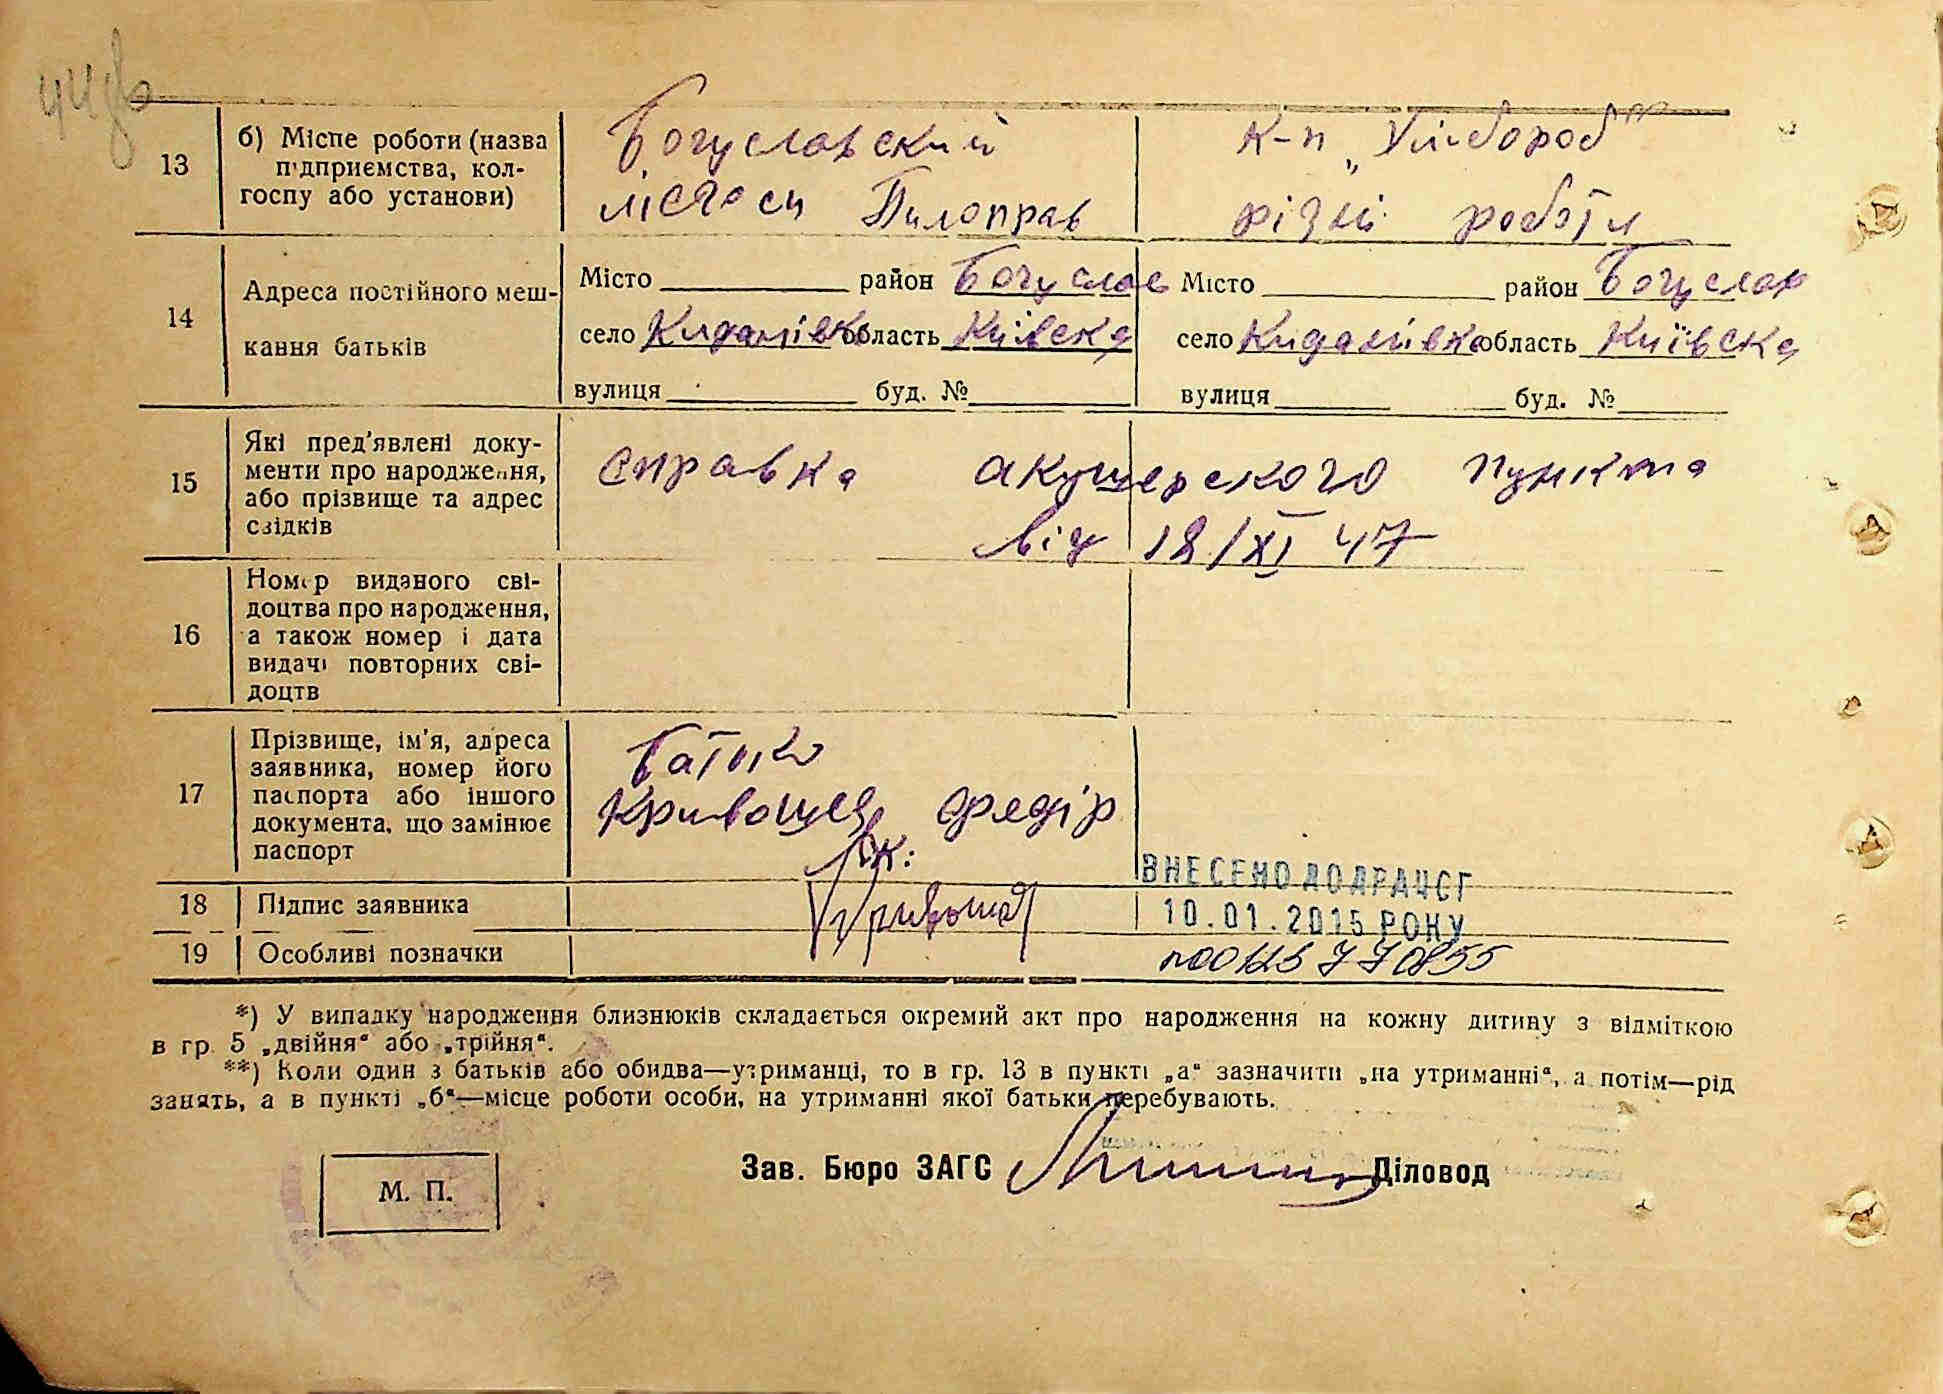 13
б) Місце роботи (назва
підприємства, кол-
госпу або установи)
Богуславский
Пилоправ
к-п „Хлібороб"
різні роботи
14
Адреса постійного меш-
кання батьків
Місто район Богуслав
село Киданівка область Київска
вулиця буд. №
Місто район Богуслав
село Киданівка область Київска
вулиця буд. №
15
Які пред'явлені доку-
менти про народження,
або прізвище та адрес
свідків
справка акушерского пункта
від 18/XI 47
16
Номер виданого сві-
доцтва про народження,
а також номер і дата
видачі повторних сві-
доцтв
17
Прізвище, ім'я, адреса
заявника, номер його
паспорта або іншого
документа, що замінює
паспорт
Батько
Фредір
ВНЕСЕНО ДО ДРАЦСГ
10.01.2015 РОКУ
18
Підпис заявника
19
Особливі позначки
*) У випадку народження близнюків складається окремий акт про народження на кожну дитину з відміткою
в гр. 5 „двійня" або „трійня".
**) Коли один з батьків або обидва—утриманці, то в гр. 13 в пункті „а" зазначити „на утриманні", а потім—рід
занять, а в пункті „б"—місце роботи особи, на утриманні якої батьки перебувають.
Зав. Бюро ЗАГС Діловод
М. П.